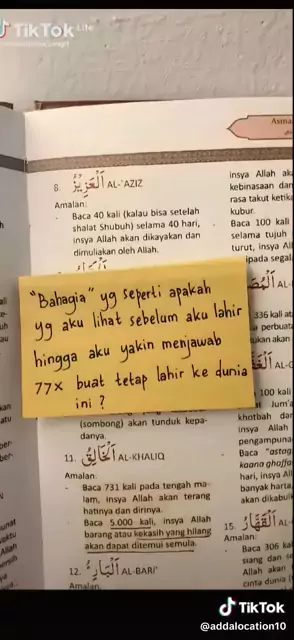 TikTok Lite
8. الْعَزِيْزُ AL-'AZIZ
Amalan:
Baca 40 kali (kalau bisa setelah
shalat Shubuh) selama 40 hari,
insya Allah akan dikayakan dan
dimuliakan oleh Allah.
"Bahagia" yg seperti apakah
yg aku lihat sebelum aku lahir
hingga aku yakin menjawab
77x buat tetap lahir ke dunia
ini ?
(sombong) akan tunduk kepa-
danya.
11. الْخَالِقُ AL-KHALIQ
Amalan:
Baca 731 kali pada tengah ma-
lam, insya Allah akan terang
hatinya dan dirinya.
Baca 5.000 kali, insya Allah
barang atau kekasih yang hilang
akan dapat ditemui semula.
12. الْبَارِئُ AL-BARI'
Amalan:
Asma
insya Allah
kebinasaan dan
rasa takut
kubur.
Baca 100 kali
selama tujuh
turut, insya
336 kali
100 kali
khotbah
insya Allah
pengampuna
Baca "astag
kaana ghaffa
hari, insya
banyak harta
akan dikabul
15. الْقَهَّارُ AL-
Amalan:
Baca 306
siang dan
Allah akan
cinta dunia
TikTok
@addalocation10